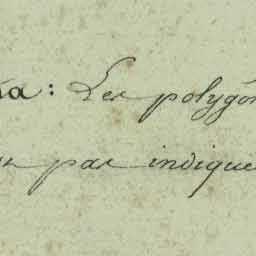 ta: Les polygon
par indique